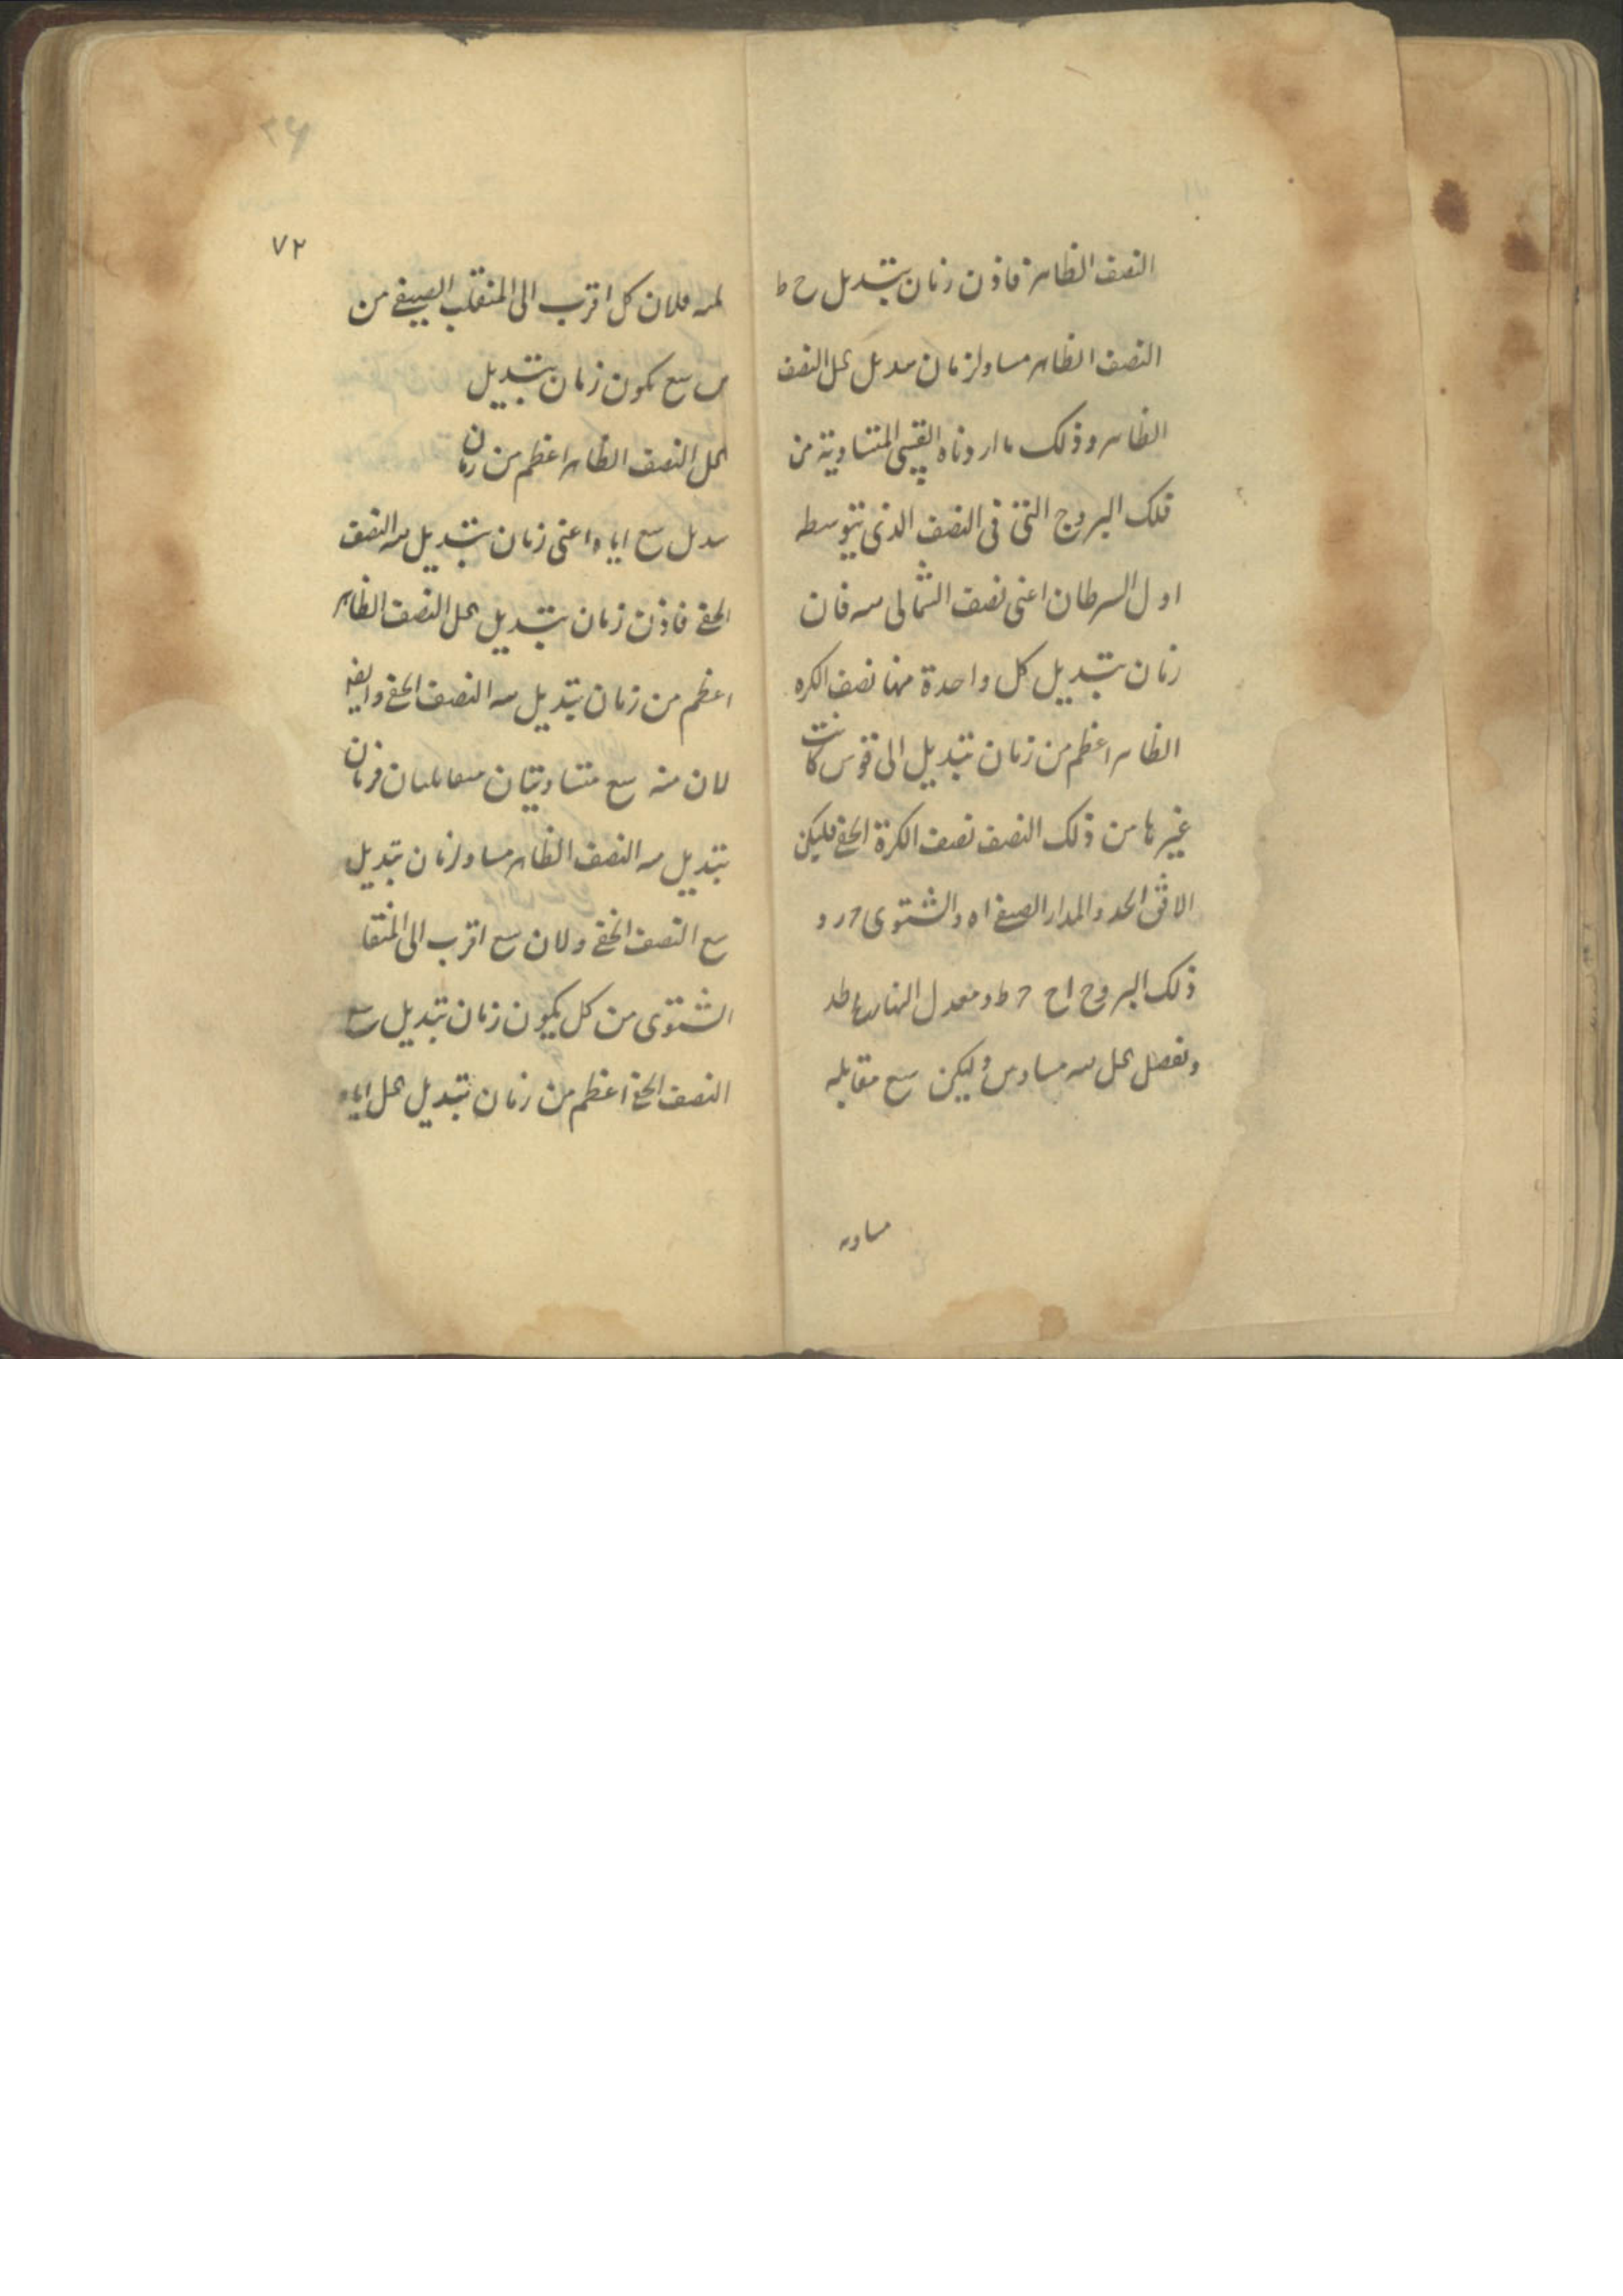 النصف الظاهر فاذن زمان تبديل ح ط
النصف الظاهر مساو لزمان تبديل كل النصف
الظاهر وذلك ما اردناه القسى المتساوية من
فلك البروج التى فى النصف الذى يتوسطه
اول السرطان اعنى نصف الشمالى منه فان
زمان تبديل كل واحدة منها نصف الكره
الظاهر اعظم من زمان تبديل اى قوس كانت
غيرها من ذلك النصف نصف الكرة الخفى فليكن
الافق احد والمدار الصيفى اه والشتوى
ذلك البروج اح ح ط ومعدل النهار
ونفصل كل مساو وليكن سع مقابله
مساويه
٣۶
٧٢
له فلان كل اقرب الى المنقلب الصيفى من
سع يكون زمان تبديل
كل النصف الظاهر اعظم من زمان
تبديل سع اياه اعنى زمان تبديل النصف
الخفى فاذن زمان تبديل كل النصف الظاهر
اعظم من زمان تبديل النصف الخفى وايضا
لان سع متساويتان متقابلتان فزمان
تبديل النصف الظاهر مساو لزمان تبديل
سع النصف الخفى ولان سع اقرب الى المنقلب
الشتوى من كل يكون زمان تبديل سع
النصف الخفى اعظم من زمان تبديل كل اياه